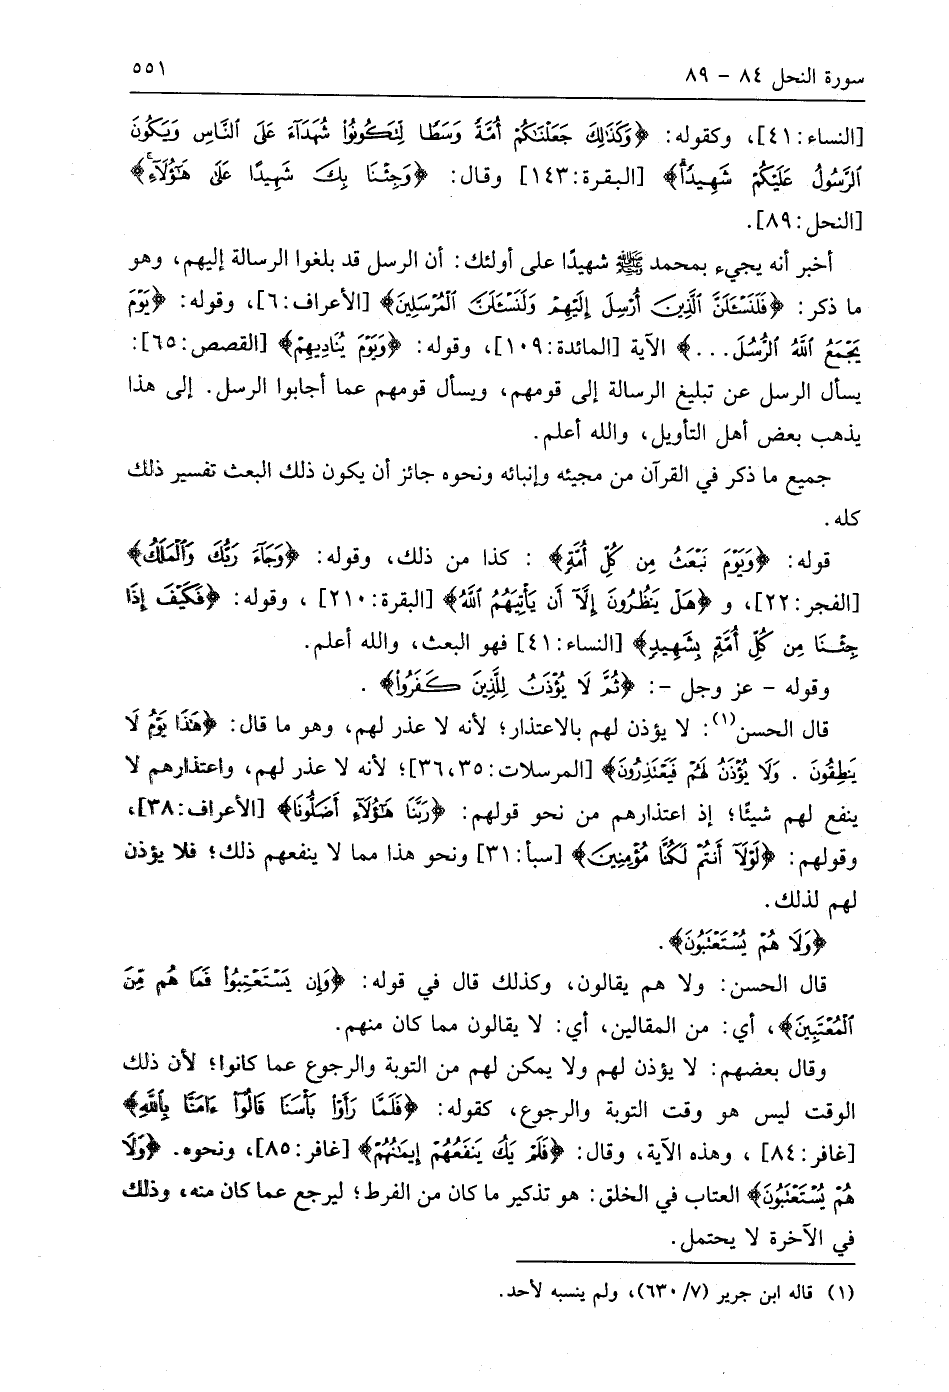 سورة النحل ٨٤ - ٨٩ ٥٥١
[النساء: ٤١]، وكقوله: ﴿وَكَذَٰلِكَ جَعَلْنَٰكُمْ أُمَّةً وَسَطًا لِّتَكُونُوا۟ شُهَدَآءَ عَلَى ٱلنَّاسِ وَيَكُونَ
ٱلرَّسُولُ عَلَيْكُمْ شَهِيدًا﴾ [البقرة: ١٤٣] وقال: ﴿وَجِئْنَا بِكَ شَهِيدًا عَلَىٰ هَٰٓؤُلَآءِ﴾
[النحل: ٨٩].
أخبر أنه يجيء بمحمد ﷺ شهيدًا على أولئك: أن الرسل قد بلغوا الرسالة إليهم، وهو
ما ذكر: ﴿فَلَنَسْـَٔلَنَّ ٱلَّذِينَ أُرْسِلَ إِلَيْهِمْ وَلَنَسْـَٔلَنَّ ٱلْمُرْسَلِينَ﴾ [الأعراف: ٦]، وقوله: ﴿يَوْمَ
يَجْمَعُ ٱللَّهُ ٱلرُّسُلَ...﴾ الآية [المائدة: ١٠٩]، وقوله: ﴿وَيَوْمَ يُنَادِيهِمْ﴾ [القصص: ٦٥]:
يسأل الرسل عن تبليغ الرسالة إلى قومهم، ويسأل قومهم عما أجابوا الرسل. إلى هذا
يذهب بعض أهل التأويل، والله أعلم.
جميع ما ذكر في القرآن من مجيئه وإنبائه ونحوه جائز أن يكون ذلك البعث تفسير ذلك
كله.
قوله: ﴿وَيَوْمَ نَبْعَثُ مِن كُلِّ أُمَّةٍ﴾ : كذا من ذلك، وقوله: ﴿وَجَآءَ رَبُّكَ وَٱلْمَلَكُ﴾
[الفجر: ٢٢]، و ﴿هَلْ يَنظُرُونَ إِلَّآ أَن يَأْتِيَهُمُ ٱللَّهُ﴾ [البقرة: ٢١٠] ، وقوله: ﴿فَكَيْفَ إِذَا
جِئْنَا مِن كُلِّ أُمَّةٍۭ بِشَهِيدٍ﴾ [النساء: ٤١] فهو البعث، والله أعلم.
وقوله - عز وجل -: ﴿ثُمَّ لَا يُؤْذَنُ لِلَّذِينَ كَفَرُوا۟﴾ .
قال الحسن(١): لا يؤذن لهم بالاعتذار؛ لأنه لا عذر لهم، وهو ما قال: ﴿هَٰذَا يَوْمُ لَا
يَنطِقُونَ . وَلَا يُؤْذَنُ لَهُمْ فَيَعْتَذِرُونَ﴾ [المرسلات: ٣٥، ٣٦]؛ لأنه لا عذر لهم، واعتذارهم لا
ينفع لهم شيئًا؛ إذ اعتذارهم من نحو قولهم: ﴿رَبَّنَا هَٰٓؤُلَآءِ أَضَلُّونَا﴾ [الأعراف: ٣٨]،
وقولهم: ﴿لَوْلَآ أَنتُمْ لَكُنَّا مُؤْمِنِينَ﴾ [سبأ: ٣١] ونحو هذا مما لا ينفعهم ذلك؛ فلا يؤذن
لهم لذلك.
﴿وَلَا هُمْ يُسْتَعْتَبُونَ﴾.
قال الحسن: ولا هم يقالون، وكذلك قال في قوله: ﴿وَإِن يَسْتَعْتِبُوا۟ فَمَا هُم مِّنَ
ٱلْمُعْتَبِينَ﴾، أي: من المقالين، أي: لا يقالون مما كان منهم.
وقال بعضهم: لا يؤذن لهم ولا يمكن لهم من التوبة والرجوع عما كانوا؛ لأن ذلك
الوقت ليس هو وقت التوبة والرجوع، كقوله: ﴿فَلَمَّا رَأَوْا۟ بَأْسَنَا قَالُوٓا۟ ءَامَنَّا بِٱللَّهِ﴾
[غافر: ٨٤] ، وهذه الآية، وقال: ﴿فَلَمْ يَكُ يَنفَعُهُمْ إِيمَٰنُهُمْ﴾ [غافر: ٨٥]، ونحوه. ﴿وَلَا
هُمْ يُسْتَعْتَبُونَ﴾ العتاب في الخلق: هو تذكير ما كان من الفرط؛ ليرجع عما كان منه، وذلك
في الآخرة لا يحتمل.
(١) قاله ابن جرير (٧/ ٦٣٠)، ولم ينسبه لأحد.